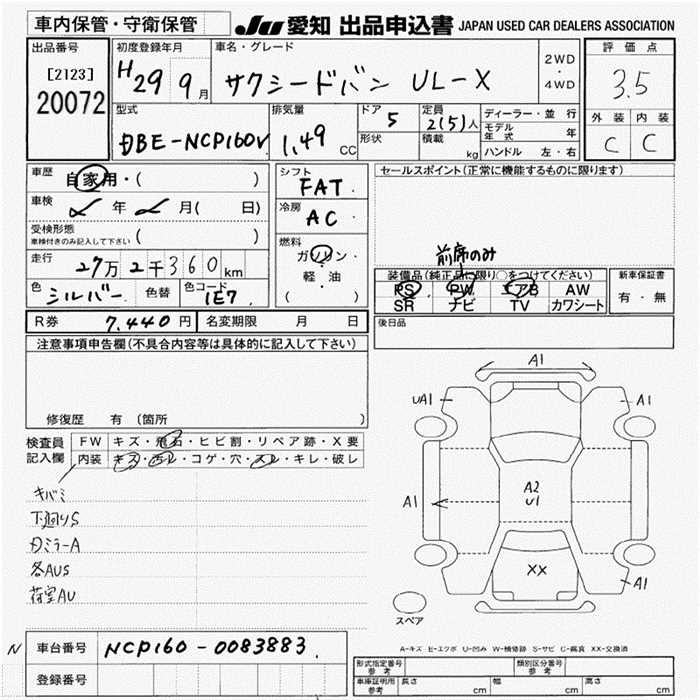 車内保管・守衛保管
JU 愛知 出品申込書 JAPAN USED CAR DEALERS ASSOCIATION
出品番号
[2123]
20072
初度登録年月
H29 9月
車名・グレード
サクシードバン UL-X
2WD
・
4WD
評価点
3.5
外装 内装
C C
型式
DBE-NCP160V
排気量
1.49 CC
ドア 5
形状
定員 2(5)人
積載 kg
ディーラー・並行
モデル年式 年
ハンドル 左・右
車歴 自家用・( )
車検 年 月( 日)
受検形態
車検付きのみ記入して下さい ( )
走行 27万2千360km
色 シルバー 色替 色コード 1E7
シフト
FAT
冷房
AC
燃料
ガソリン・
軽・油
( )
セールスポイント(正常に機能するものに限ります)
前席のみ
装備品(純正品に限り○をつけてください)
PS PW エアB AW
SR ナビ TV カワシート
新車保証書
有・無
後日品
R券 7,440円 名変期限 月 日
注意事項申告欄(不具合内容等は具体的に記入して下さい)
修復歴 有 (箇所 )
検査員
記入欄
FW キズ・飛石・ヒビ割・リペア跡・X要
内装 キズ・汚レ・コゲ・穴・スレ・キレ・破レ
キバミ
下廻りS
刀ミラーA
各AUS
荷室AU
A1
UA1
A1
A1
A2
U1
XX
A1
スペア
A-キズ E-エクボ U-凹み W-補修跡 S-サビ C-腐食 XX-交換済
N 車台番号 NCP160-0083883
登録番号
形式指定番号
参考
類別区分番号
参考
車庫証明用
参考
長さ cm 幅 cm 高さ cm